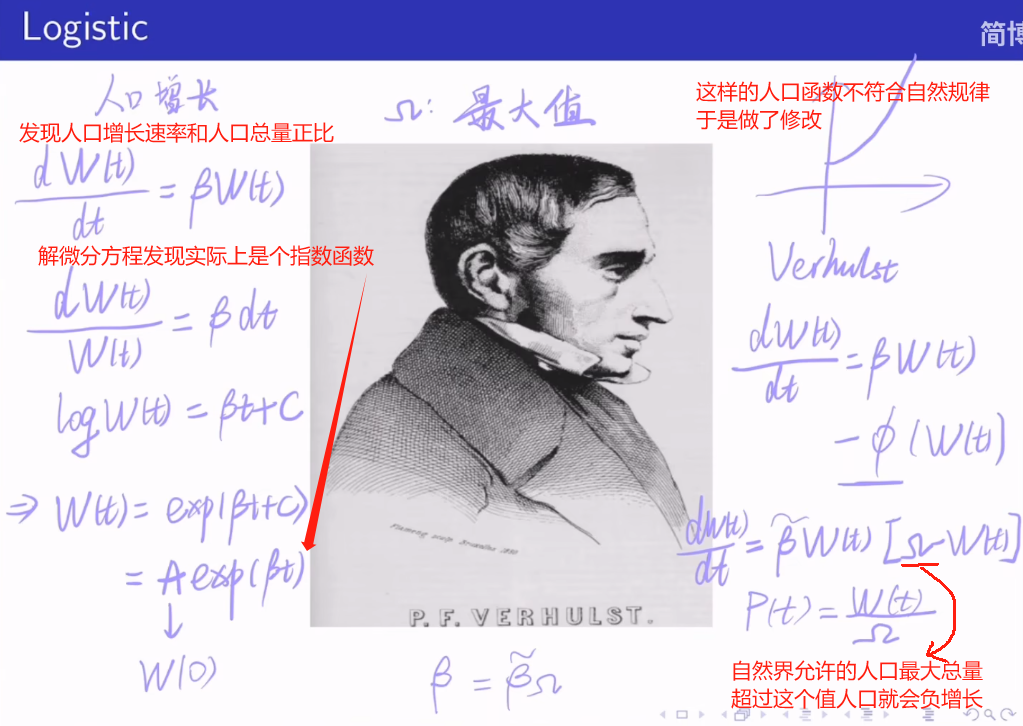 Logistic
简博
人口增长
发现人口增长速率和人口总量正比
dW(t)/dt = βW(t)
解微分方程发现实际上是个指数函数
dW(t)/W(t) = βdt
log W(t) = βt+C
⇒ W(t) = exp(βt+C)
= A exp(βt)
↓
W(0)
Ω: 最大值
P. F. VERHULST.
β = β̃Ω
这样的人口函数不符合自然规律
于是做了修改
Verhulst
dW(t)/dt = βW(t)
- φ(W(t))
dW(t)/dt = β̃W(t)[Ω-W(t)]
P(t) = W(t)/Ω
自然界允许的人口最大总量
超过这个值人口就会负增长